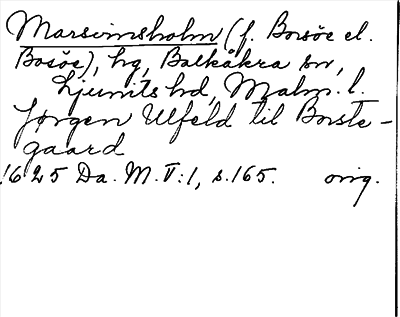 Marsvinsholm (f. Borsöe el.
Bosöe), hg, Balkåkra sn,
Ljunits hd, Malm. l.
Jørgen Ulfeld til Borste-
gaard
1625 Da. M. V:1, s. 165. orig.